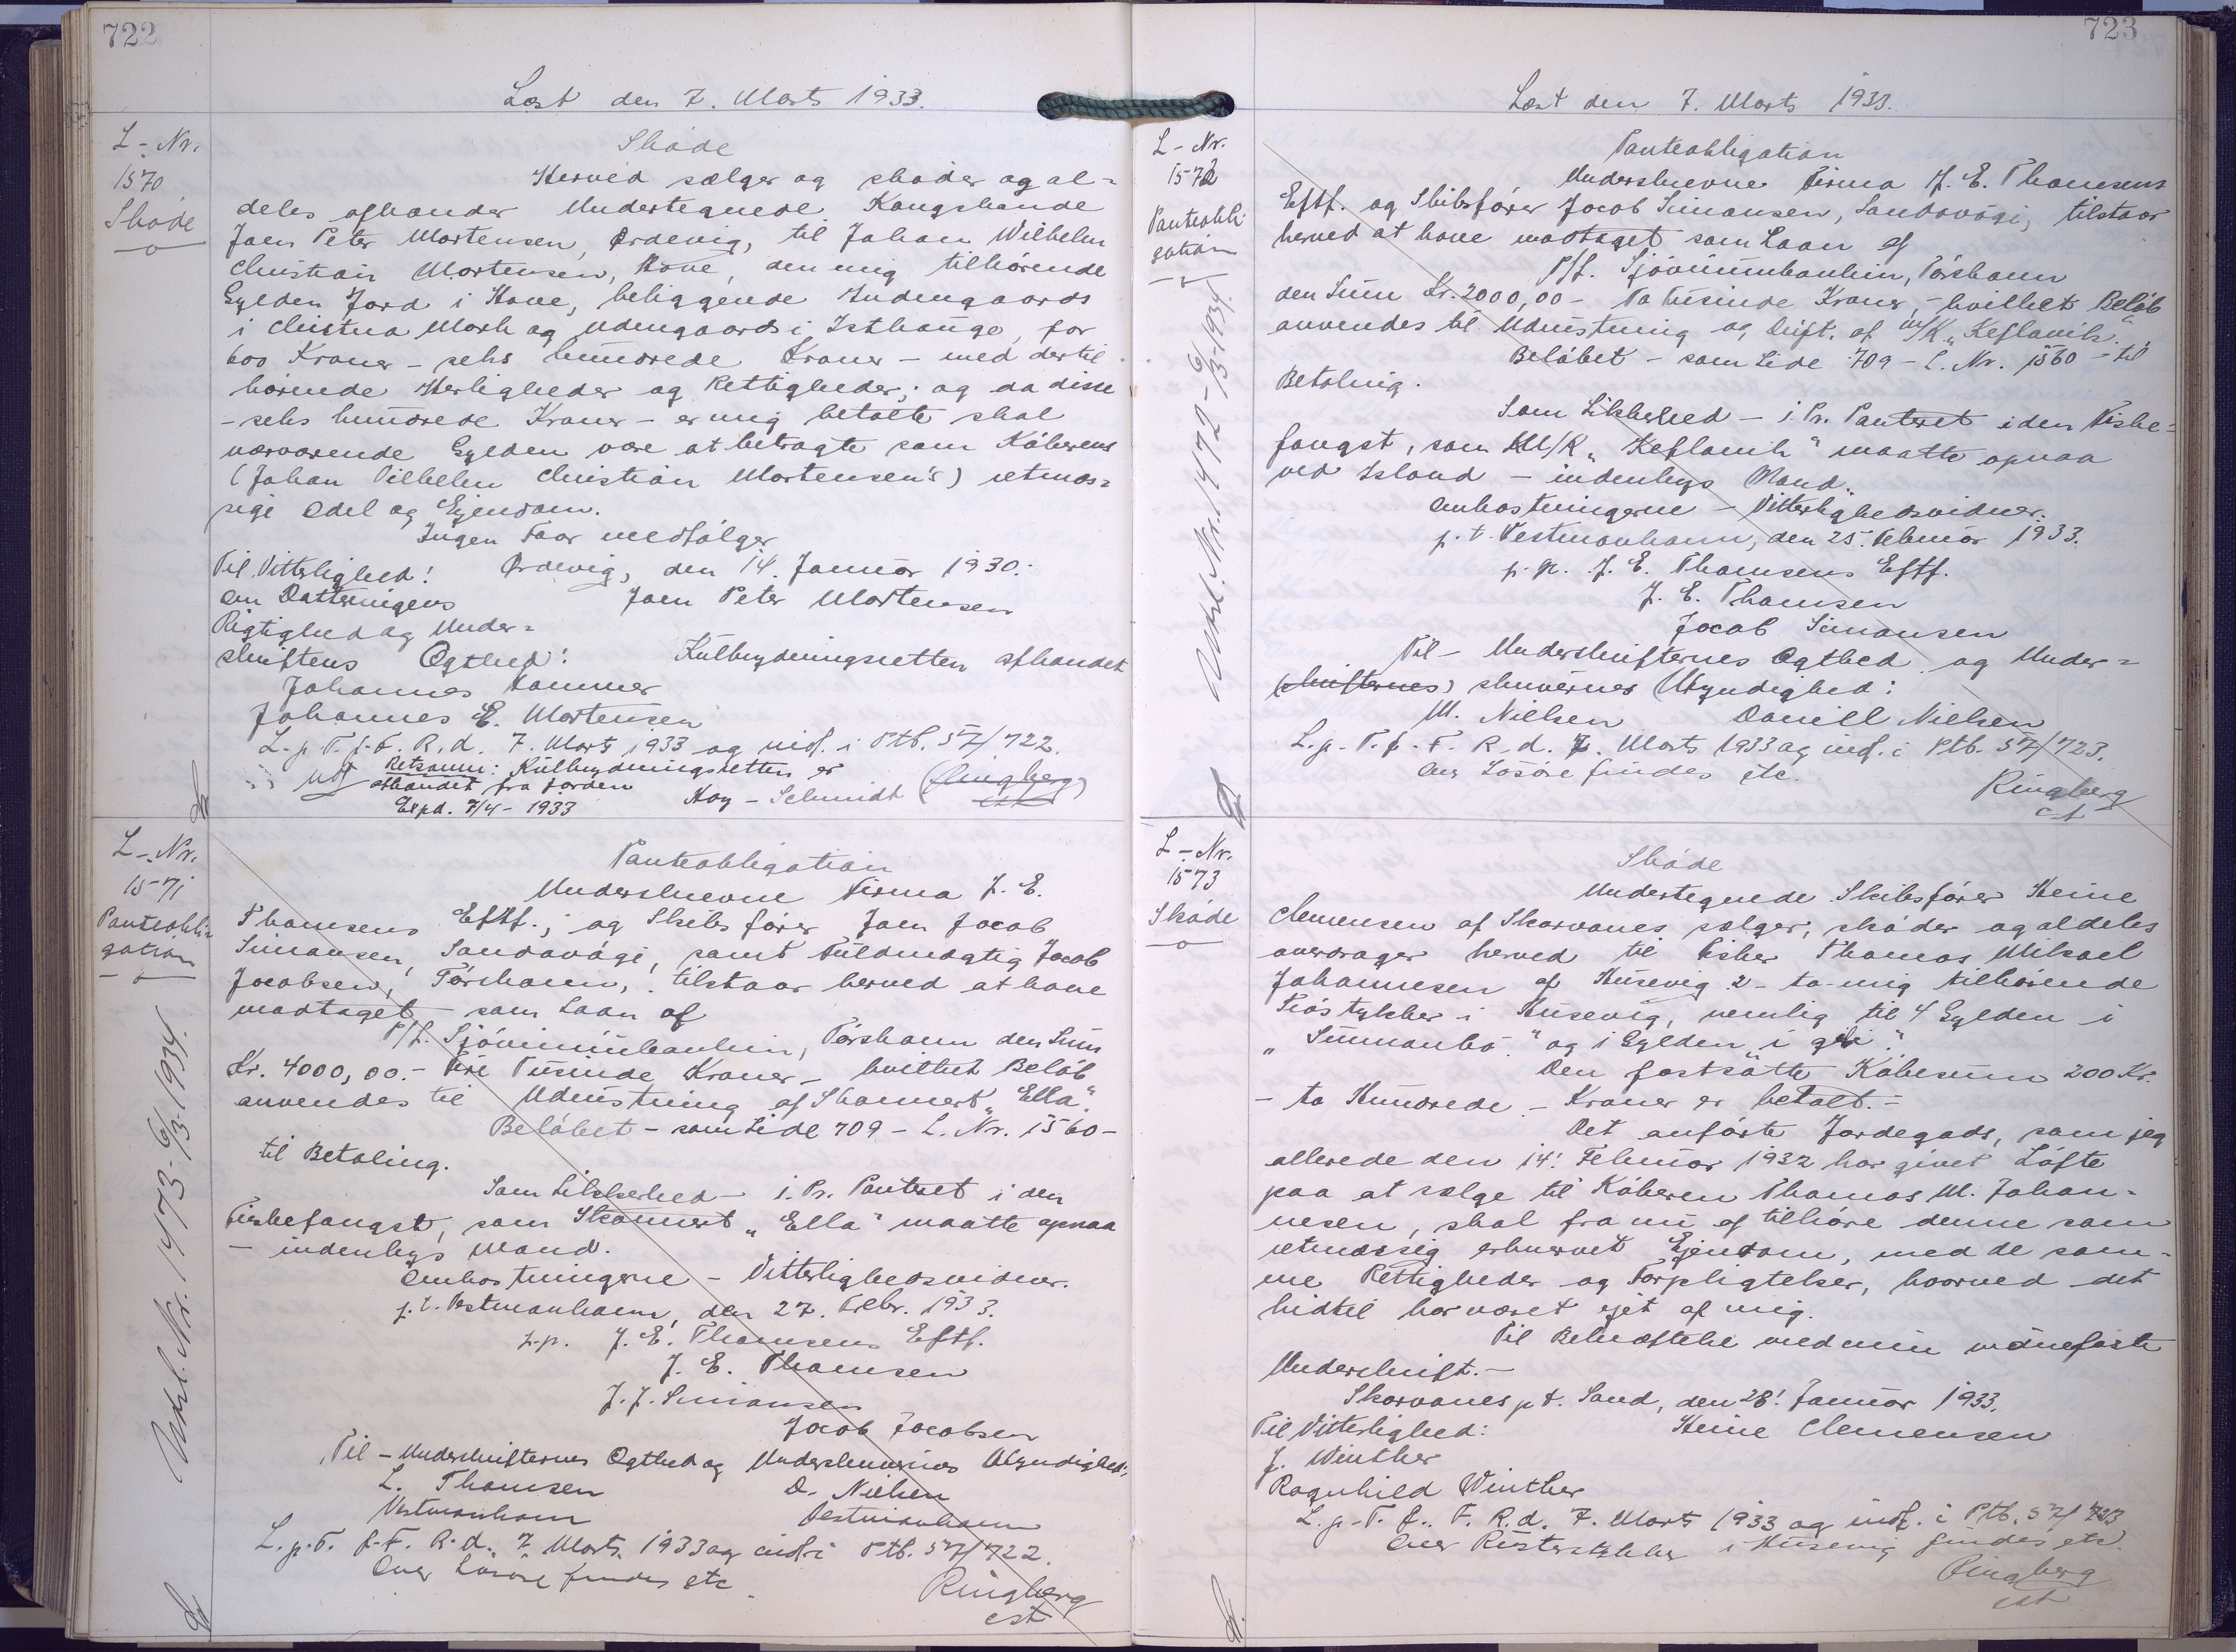 722
Læst den 7. Marts 1933.
L-Nr.
1570
Skøde
Skøde
Herved sælger og skøder og al=
deles afhænder Undertegnede Kongsbonde
Joen Peter Mortensen, Ørdevig, til Johan Wilhelm
Christian Mortensen, Hove, den mig tilhørende
Gylden Jord i Hove, beliggende Indengaards
i Mark og Udengaards i for
600 Kroner - seks hundrede Kroner - med dertil
hørende Herligheder og Rettigheder; og da disse
- seks hundrede Kroner - er mig betalte skal
nærværende Gylden være at betragte som Køberens
(Johan Vilhelm Christian Mortensen's) retmæs=
sige Odel og Ejendom.
Ingen Faar medfølger
Til Vitterlighed! Ørdevig, den 14. Januar 1930.
om Datteringens Joen Peter Mortensen
Rigtighed og Under=
skriftens Ægthed! Kulbrydningsretten afhændet
Johannes Kammer
Johannes E. Mortensen
L. p. T. f. F. R. d. 7. Marts 1933 og indf. i Ptb. 57/722.
Retsanm: Kulbrydningsretten er
afhændet fra Jorden Kay-Schmidt (Ringberg)
Expd. 7/4-1933 cst
L-Nr.
1571
Panteobli=
gation
Udsl. Nr. 1473-6/3-1934.
Panteobligation
Underskrevne Firma J. E.
Thomsens Eftf., og Skibsfører Joen Jacob
Simonsen, Sandavági, samt Fuldmægtig Jacob
Jacobsen, Tórshavn, tilstaar herved at have
modtaget - som Laan af
P/f. Sjóvinnubankin, Tórshavn den Sum
Kr. 4000,00.- Fire Tusinde Kroner - hvilket Beløb
anvendes til Udrustning af Skonnert "Ella".
Beløbet - som Side 709 - L. Nr. 1560 -
til Betaling.
Som Sikkerhed - i. Pr. Panteret i den
Fiskefangst, som Skonnert "Ella" maatte opnaa
- indenbys Mand.
Omkostningerne - Vitterlighedsvidner.
p.t. Vestmanhavn, den 27. Febr. 1933.
p.p. J. E. Thomsens Eftf.
J. E. Thomsen
J. J. Simonsen
Jacob Jacobsen
Til - Underskrifternes Ægthed og Underskrivernes Myndighed:
L. Thomsen D. Nielsen
Vestmanhavn Vestmanhavn
L. p. T. f. F. R. d. 7. Marts 1933 og indf. i Ptb. 57/722.
Over Løsøre findes etc.
Ringberg
cst
723
Læst den 7. Marts 1933.
L-Nr.
1572
Panteobli-
gation
Udsl. Nr. 1472-6/3-1934.
Panteobligation
Underskrevne Firma J. E. Thomsens
Eftf. og Skibsfører Jacob Simonsen, Sandavági, tilstaar
herved at have modtaget som Laan af
P/f. Sjóvinnubankin, Tórshavn
den Sum Kr. 2000,00 - To Tusinde Kroner, - hvilket Beløb
anvendes til Udrustning og Drift af m/k "Keflavik".
Beløbet - som Side 709 - L. Nr. 1560 - til
Betaling.
Som Sikkerhed - i. Pr. Panteret i den Fiske=
fangst, som M/K "Keflavik" maatte opnaa
ved Island - indenbys Mand.
Omkostningerne - Vitterlighedsvidner.
p. t. Vestmanhavn, den 25. Februar 1933.
p. p. J. E. Thomsens Eftf.
J. E. Thomsen
Jacob Simonsen
Til - Underskrifternes Ægthed og Under=
(skrifternes) skrivernes Myndighed:
M. Nielsen Daniell Nielsen
L. p. T. f. F. R. d. 7. Marts 1933 og indf. i Ptb. 57/723.
Over Løsøre findes etc.
Ringberg
cst
L-Nr.
1573
Skøde
Skøde
Undertegnede Skibsfører Heine
Clemensen af Skarvanes sælger, skøder og aldeles
overdrager herved til Fisker Thomas Mikael
Johannesen af Husevig 2 - to - mig tilhørende
Træstykker i Husevig, nemlig til 4 Gylden i
og 1 Gylden
Den fastsatte Købesum 200 Kr.
- to Hundrede - Kroner er betalt.-
Det anførte Jordegods, som jeg
allerede den 14! Februar 1932 har givet Løfte
paa at sælge til Køberen Thomas M. Johan-
nesen, skal fra nu af tilhøre denne som
retmæssig erhvervet Ejendom, med de sam-
me Rettigheder og Forpligtelser, hvormed det
hidtil har været ejet af mig.
Til Bekræftelse med min vidnefaste
Underskrift.-
Skarvanes p t. Sand, den 28! Januar 1933.
Til Vitterlighed: Heine Clemensen
J. Winther
Ragnhild Winther
L. p. T. f. F. R. d. 7. Marts 1933 og indf. i Ptb. 57/723
Over i Husevig findes etc.
Ringberg
cst